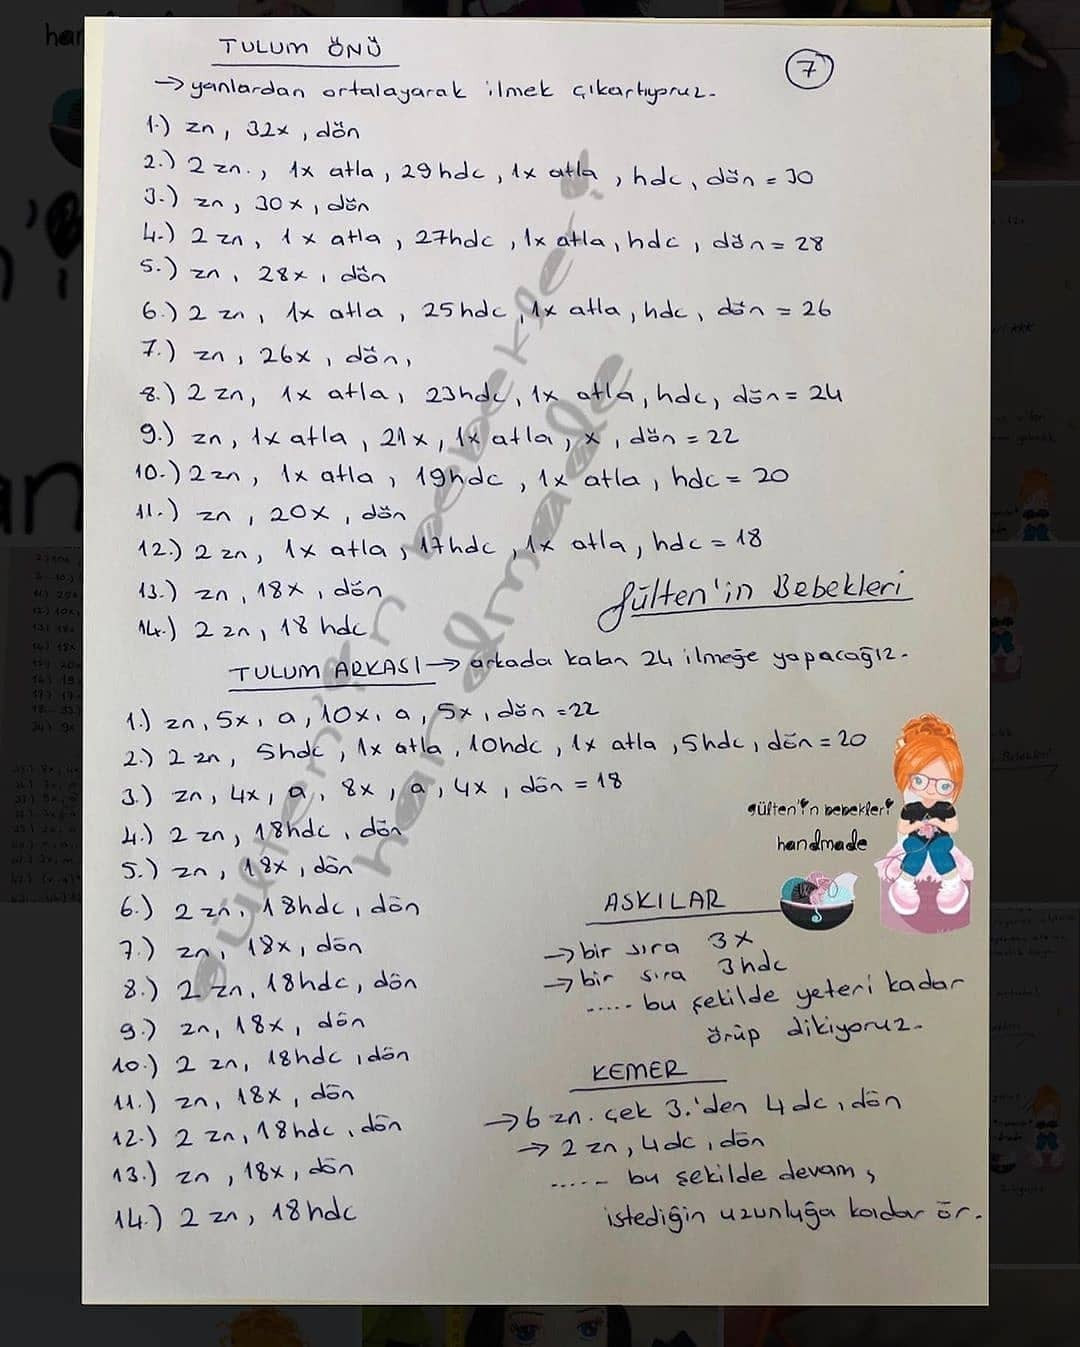 TULUM ÖNÜ
7
→ yanlardan ortalayarak ilmek çıkartıyoruz.
1.) zn, 32x, dön
2.) 2 zn., 1x atla, 29 hdc, 1x atla, hdc, dön = 30
3.) zn, 30x, dön
4.) 2 zn, 1x atla, 27hdc, 1x atla, hdc, dön = 28
5.) zn, 28x, dön
6.) 2 zn, 1x atla, 25hdc, 1x atla, hdc, dön = 26
7.) zn, 26x, dön,
8.) 2 zn, 1x atla, 23hdc, 1x atla, hdc, dön = 24
9.) zn, 1x atla, 21x, 1x atla, x, dön = 22
10.) 2 zn, 1x atla, 19hdc, 1x atla, hdc = 20
11.) zn, 20x, dön
12.) 2 zn, 1x atla, 17hdc, 1x atla, hdc = 18
13.) zn, 18x, dön
14.) 2 zn, 18 hdc
Gülten'in Bebekleri
TULUM ARKASI → arkada kalan 24 ilmeğe yapacağız.
1.) zn, 5x, a, 10x, a, 5x, dön = 22
2.) 2 zn, 5hdc, 1x atla, 10hdc, 1x atla, 5hdc, dön = 20
3.) zn, 4x, a, 8x, a, 4x, dön = 18
4.) 2 zn, 18hdc, dön
5.) zn, 18x, dön
6.) 2 zn, 18hdc, dön
7.) zn, 18x, dön
8.) 2 zn, 18hdc, dön
9.) zn, 18x, dön
10.) 2 zn, 18hdc, dön
11.) zn, 18x, dön
12.) 2 zn, 18hdc, dön
13.) zn, 18x, dön
14.) 2 zn, 18hdc
gülten'in bebekleri
handmade
ASKILAR
→ bir sıra 3x
→ bir sıra 3hdc
..... bu şekilde yeteri kadar
örüp dikiyoruz.
KEMER
→ 6 zn. çek 3.'den 4dc, dön
→ 2 zn, 4dc, dön
..... bu şekilde devam,
istediğin uzunluğa kadar ör.
gülten'in bebekleri
handmade